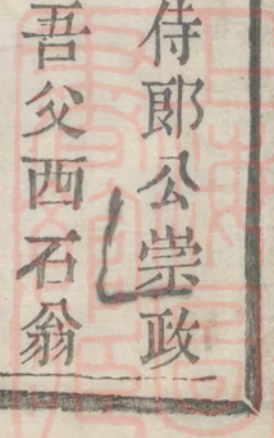 侍郎公崇政
吾父西石翁